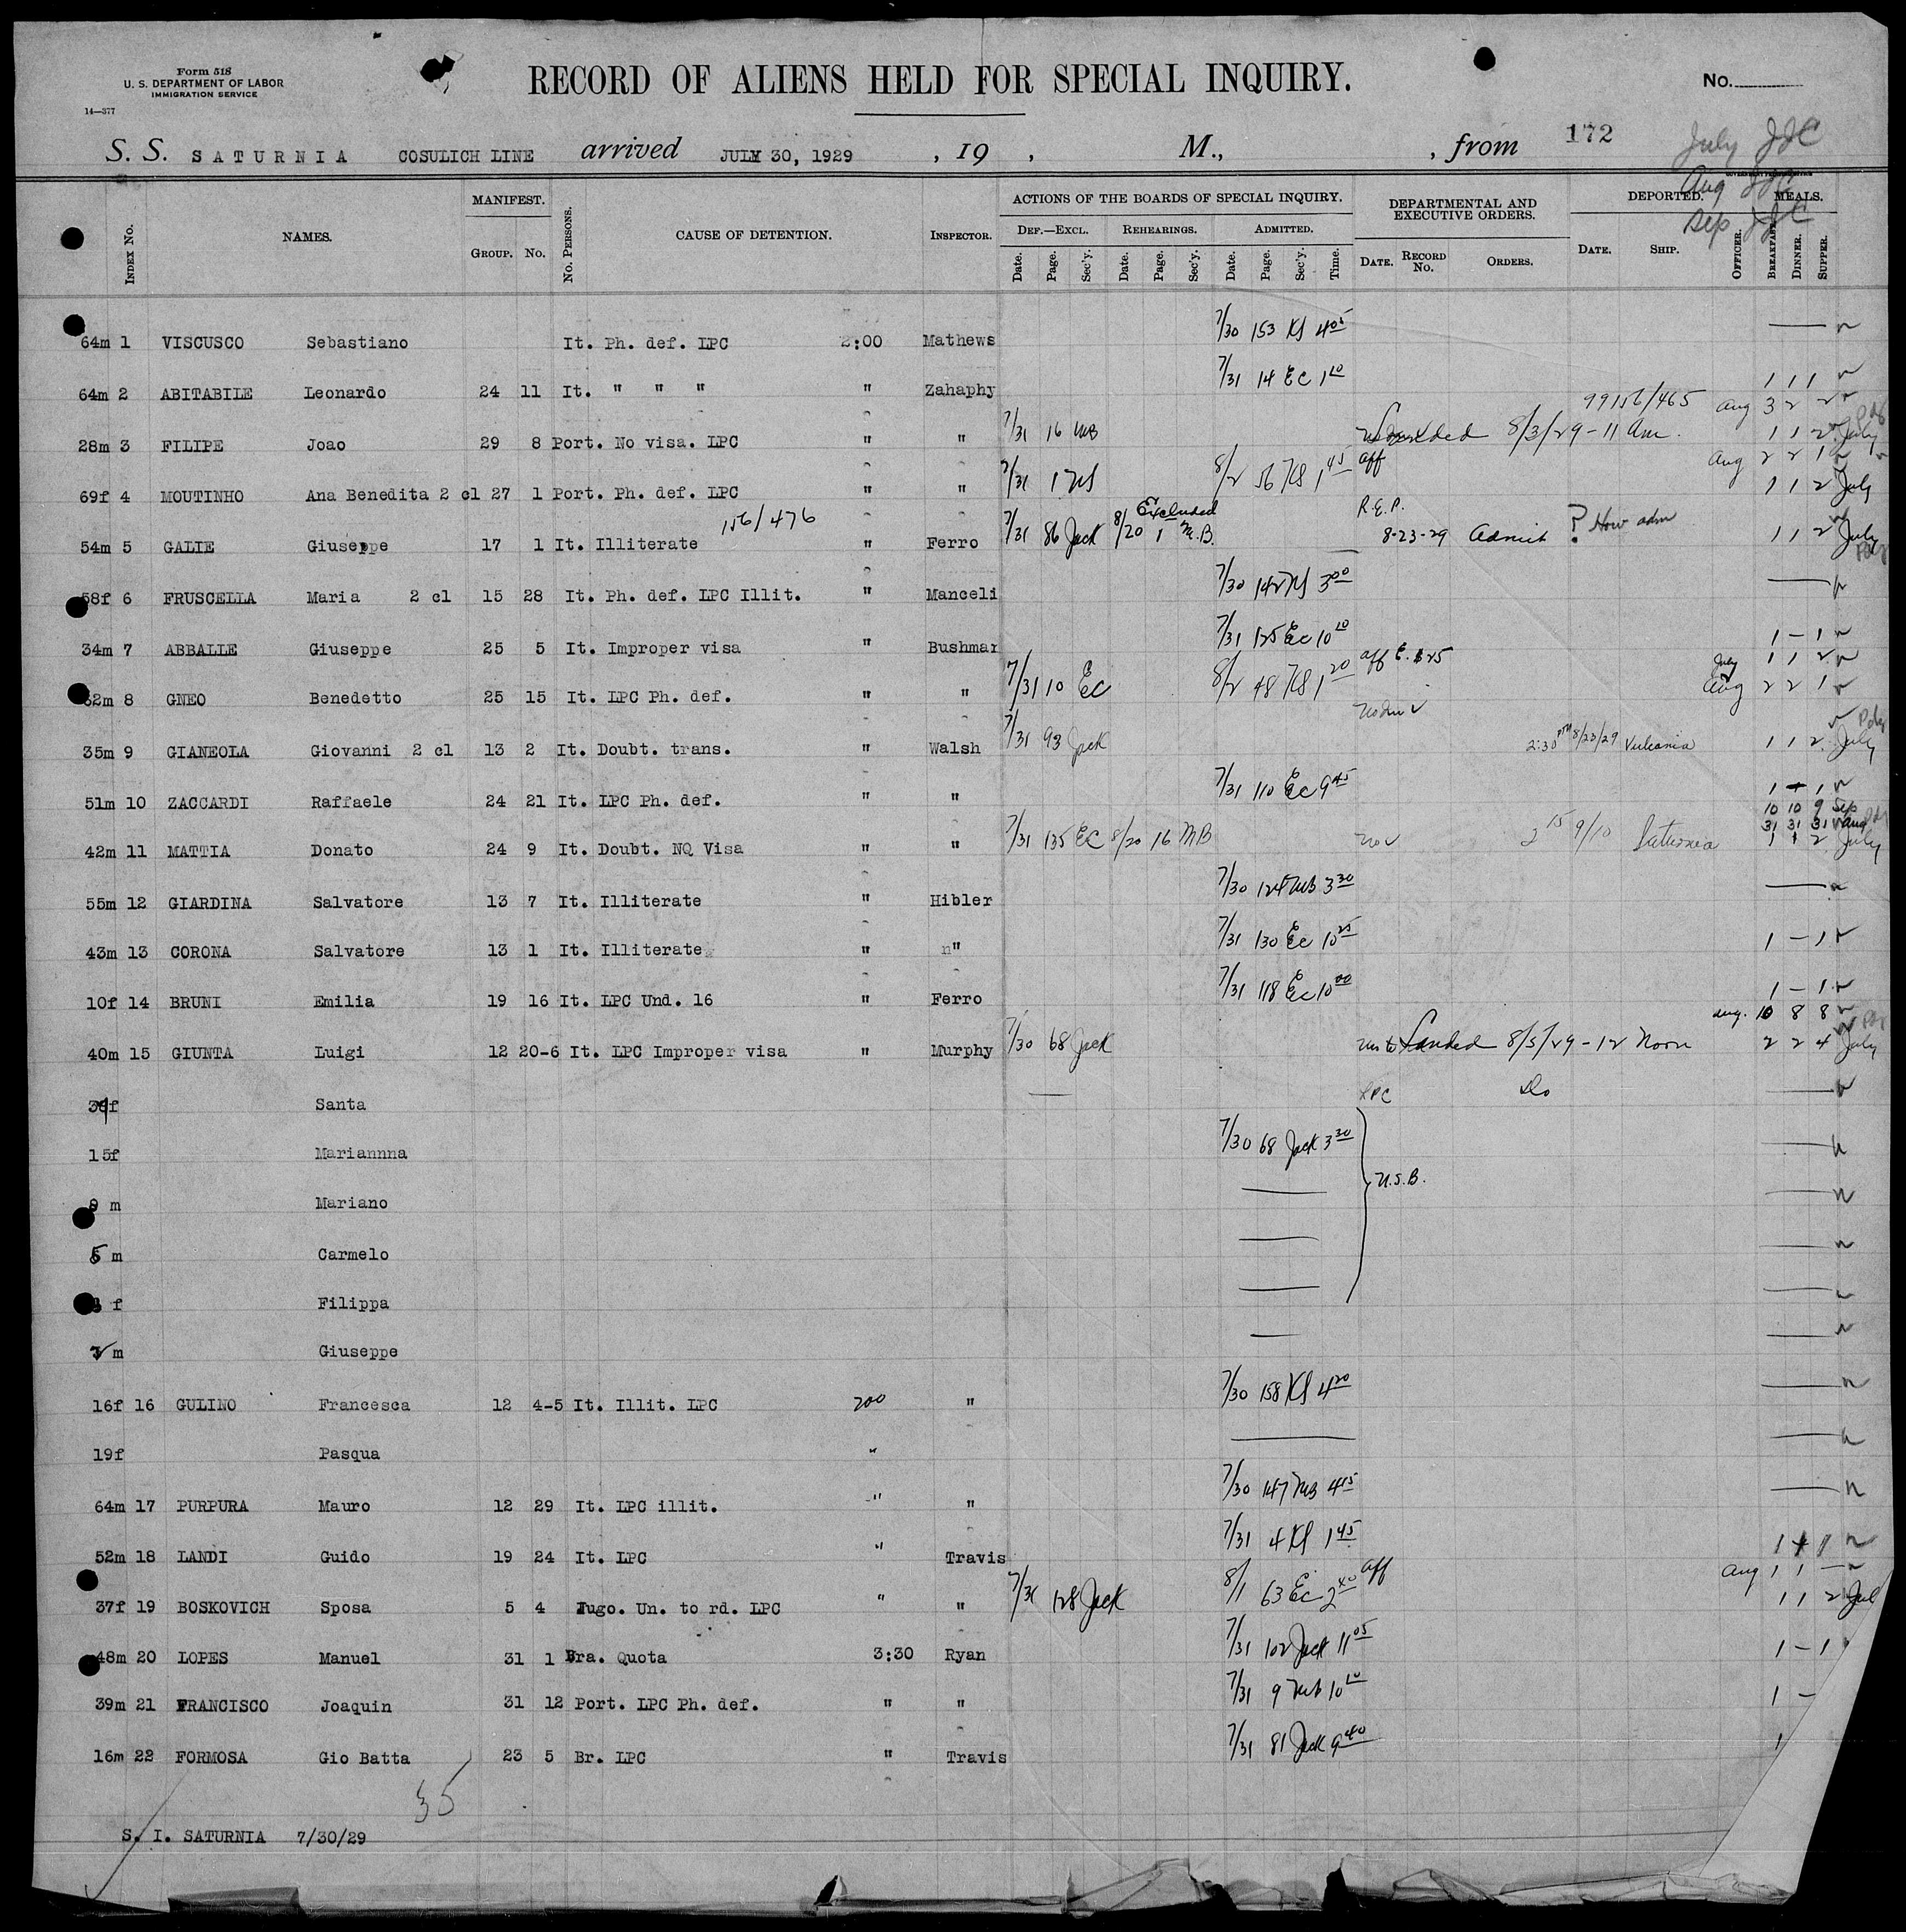 Form 518
U. S. DEPARTMENT OF LABOR
IMMIGRATION SERVICE
14—377
RECORD OF ALIENS HELD FOR SPECIAL INQUIRY.
No.
S. S. SATURNIA COSULICH LINE arrived JULY 30, 1929 , 19 , M., , from 172
July JJC
Aug JJC
Sep JJC
INDEX NO. NAMES. MANIFEST. GROUP. NO. NO. PERSONS. CAUSE OF DETENTION. INSPECTOR. ACTIONS OF THE BOARDS OF SPECIAL INQUIRY. DEF.—EXCL. Date. Page. Sec'y. REHEARINGS. Date. Page. Sec'y. ADMITTED. Date. Page. Sec'y. Time. DEPARTMENTAL AND EXECUTIVE ORDERS. DATE. RECORD NO. ORDERS. DEPORTED. DATE. SHIP. OFFICER. MEALS. BREAKFAST. DINNER. SUPPER.
64m 1 VISCUSCO Sebastiano It. Ph. def. LPC 2:00 Mathews 7/30 153 KS 4 05
64m 2 ABITABILE Leonardo 24 11 It. " " " " Zahaphy 7/31 14 EC 1 10 1 1 1
99156/465 Aug 3 2 2
28m 3 FILIPE Joao 29 8 Port. No visa. LPC " " 7/31 16 MB Landed 8/3/29 - 11 am. 1 1 2 July
Aug 2 2 1
69f 4 MOUTINHO Ana Benedita 2 cl 27 1 Port. Ph. def. LPC " " 7/31 1 KS 8/2 56 KS 1 45 aff 1 1 2 July
156/476 Excluded R.E.P.
54m 5 GALIE Giuseppe 17 1 It. Illiterate " Ferro 7/31 86 Jack 8/20 1 M.B. 8-23-29 Admit ? How adm 1 1 2 July
58f 6 FRUSCELLA Maria 2 cl 15 28 It. Ph. def. LPC Illit. " Manceli 7/30 142 KS 3 00
34m 7 ABBALLE Giuseppe 25 5 It. Improper visa " Bushmar 7/31 125 EC 10 10 1 – 1
July 1 1 2
62m 8 GNEO Benedetto 25 15 It. LPC Ph. def. " " 7/31 10 EC 8/2 48 KS 1 20 aff E. $25 Aug 2 2 1
35m 9 GIANEOLA Giovanni 2 cl 13 2 It. Doubt. trans. " Walsh 7/31 93 Jack 2:30 PM 8/23/29 Vulcania 1 1 2 July
51m 10 ZACCARDI Raffaele 24 21 It. LPC Ph. def. " " 7/31 110 EC 9 45 1 – 1
10 10 9 Sep
31 31 31 Aug
42m 11 MATTIA Donato 24 9 It. Doubt. NQ Visa " " 7/31 135 EC 8/20 16 MB 2 15 9/10 Saturnia 1 1 2 July
55m 12 GIARDINA Salvatore 13 7 It. Illiterate " Hibler 7/30 124 MB 3 30
43m 13 CORONA Salvatore 13 1 It. Illiterate " " 7/31 130 EC 10 25 1 – 1
10f 14 BRUNI Emilia 19 16 It. LPC Und. 16 " Ferro 7/31 118 EC 10 00 1 – 1
Aug. 10 8 8
40m 15 GIUNTA Luigi 12 20-6 It. LPC Improper visa " Murphy 7/30 68 Jack Landed 8/5/29 - 12 Noon 2 2 4 July
f Santa LPC Do
15f Mariannna 7/30 68 Jack 3 30
9 m Mariano U.S.B.
5 m Carmelo
f Filippa
m Giuseppe
16f 16 GULINO Francesca 12 4-5 It. Illit. LPC 200 " 7/30 158 KS 4 20
19f Pasqua "
64m 17 PURPURA Mauro 12 29 It. LPC illit. " " 7/30 147 MB 4 15
52m 18 LANDI Guido 19 24 It. LPC " Travis 7/31 4 KS 1 45
Aug 1 1 –
37f 19 BOSKOVICH Sposa 5 4 Iugo. Un. to rd. LPC " " 7/31 128 Jack 8/1 63 EC 2 40 aff 1 1 2 Jul
48m 20 LOPES Manuel 31 1 Bra. Quota 3:30 Ryan 7/31 102 Jack 11 05 1 – 1
39m 21 FRANCISCO Joaquin 31 12 Port. LPC Ph. def. " " 7/31 9 MB 10 10 1 –
16m 22 FORMOSA Gio Batta 23 5 Br. LPC " Travis 7/31 81 Jack 9 40 1
35
S. I. SATURNIA 7/30/29